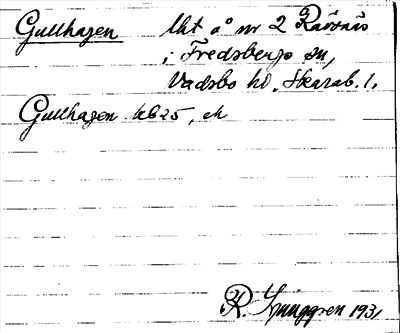 Gullhagen lht å nr 2 Råsnäs
i Fredsbergs sn,
Vadsbo hd, Skarab. l.
Gullhagen kb 25, ek
R. Ljunggren 1931